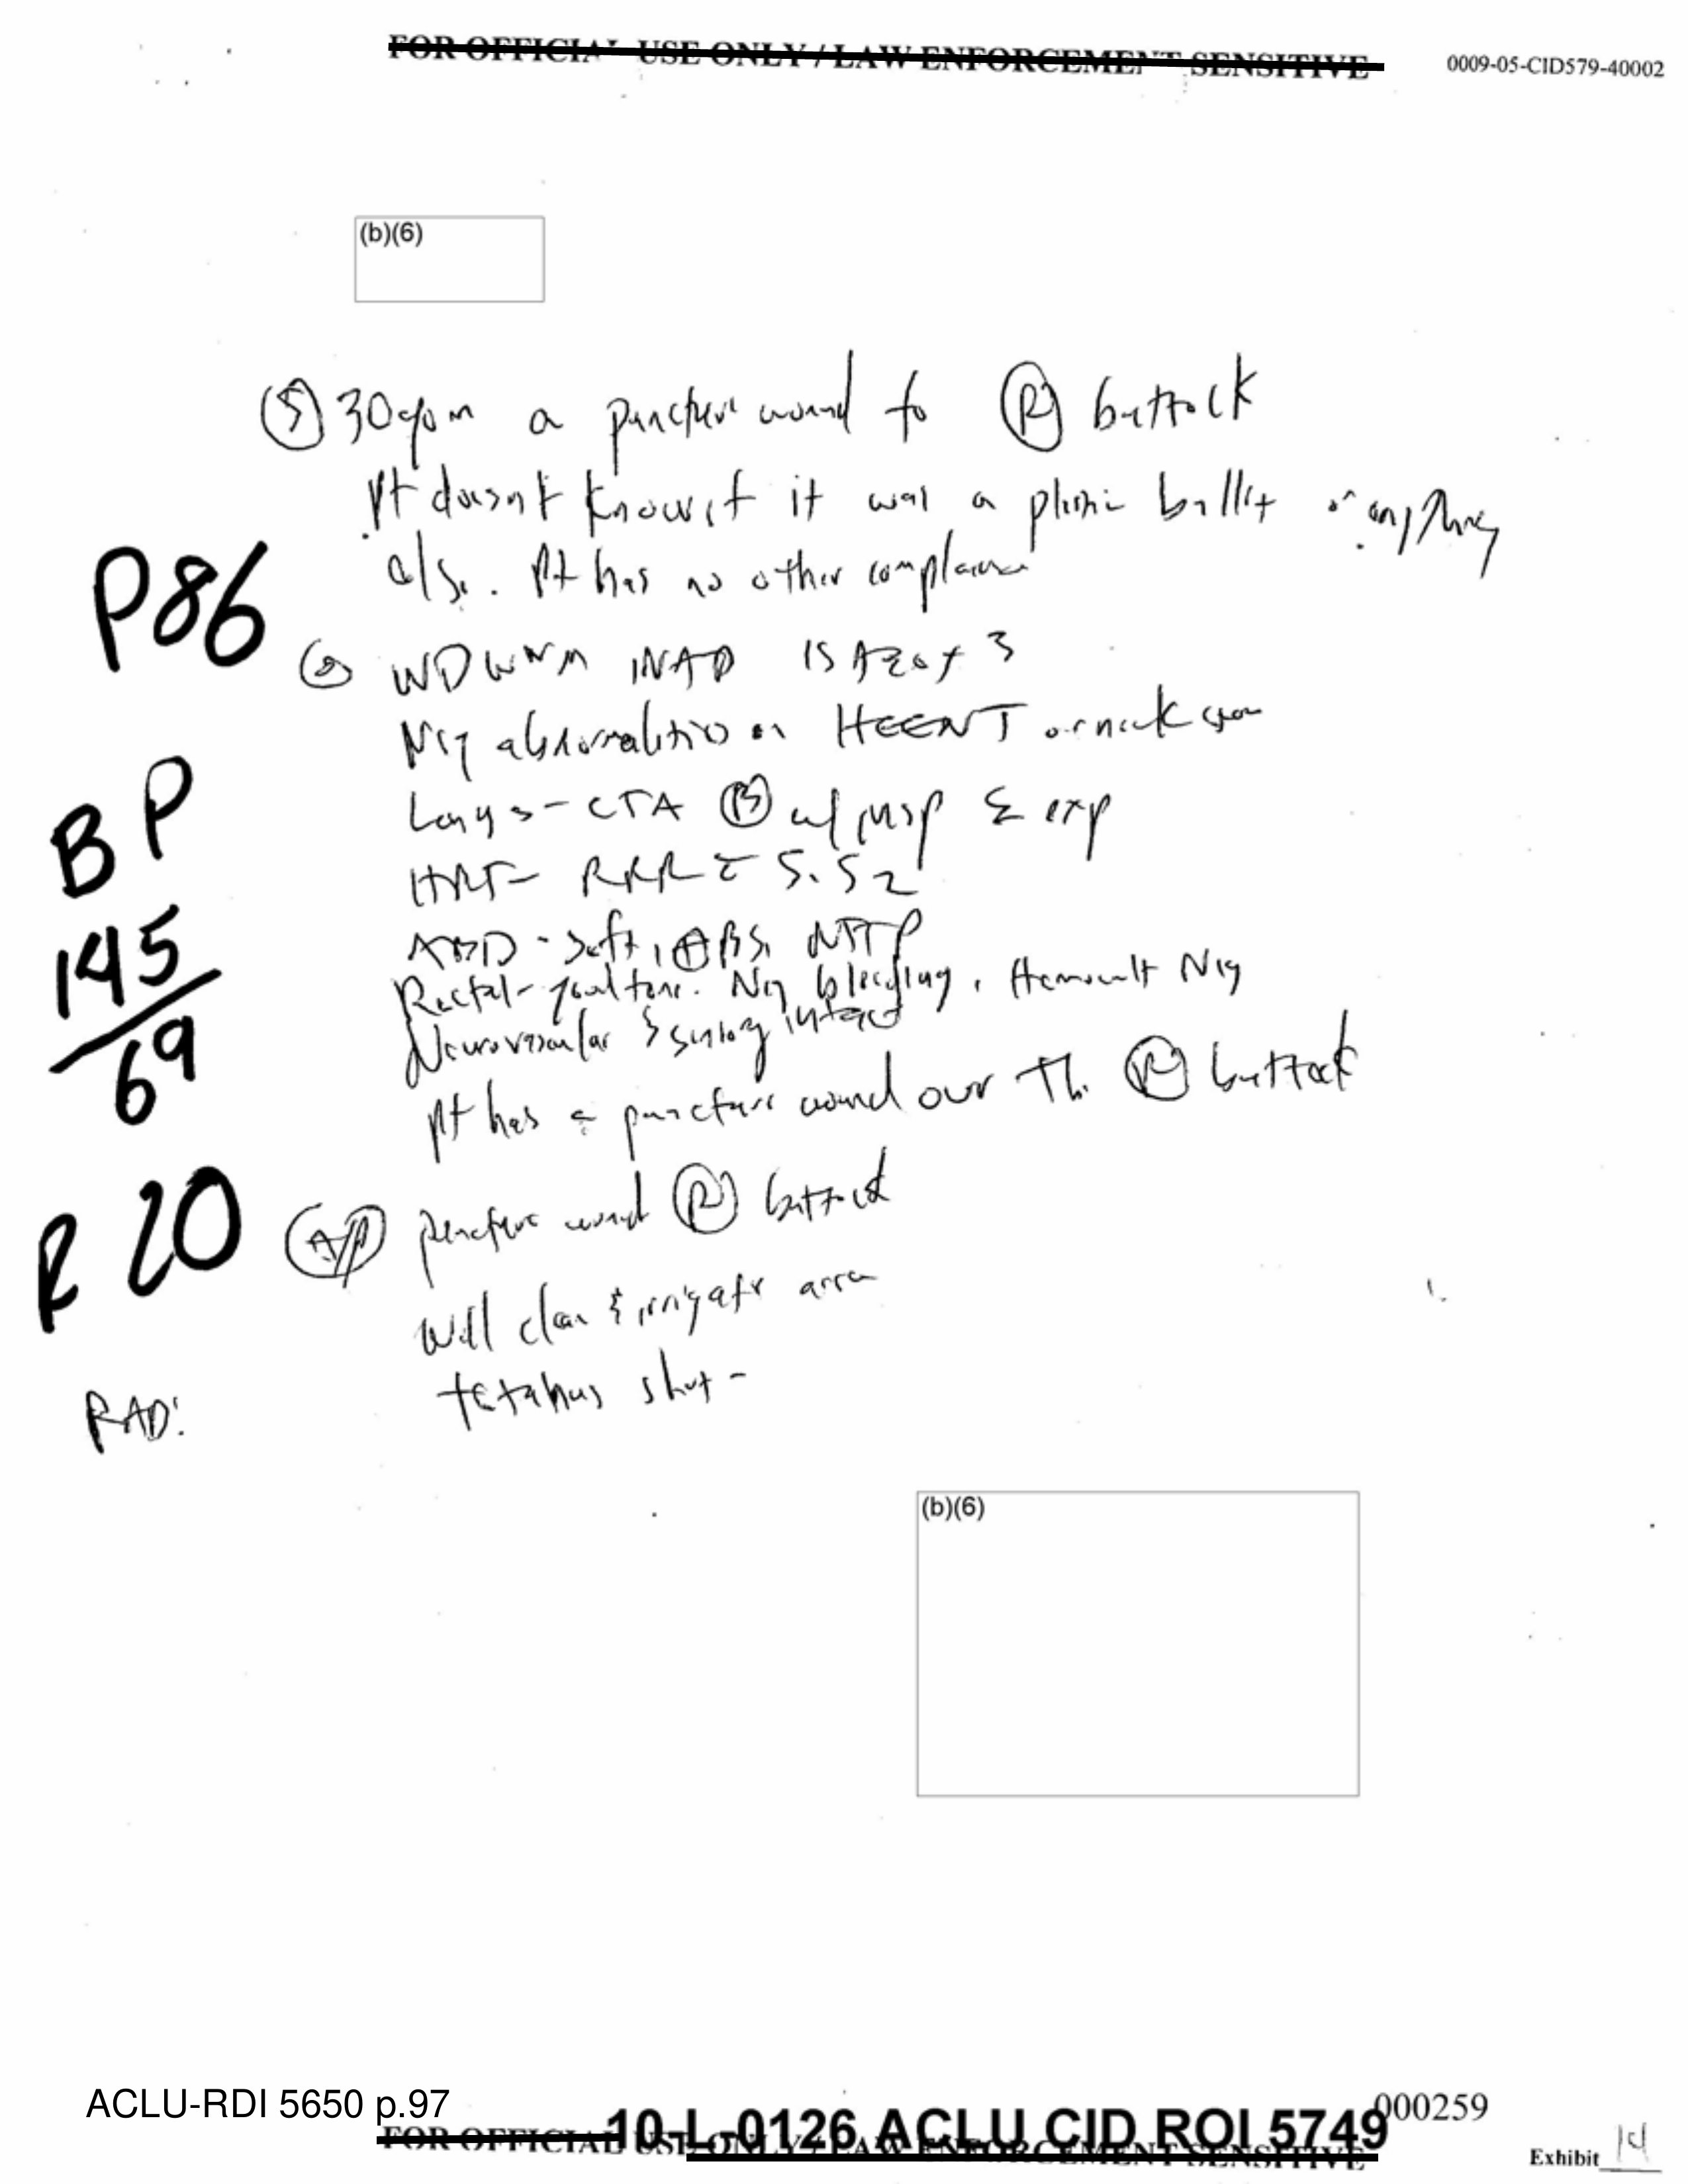 FOR OFFICIAL USE ONLY / LAW ENFORCEMENT SENSITIVE
0009-05-CID579-40002
(b)(6)
(S) 30 yo m a puncture wound to (R) buttock
Pt doesn't know if it was a bullit or anything
else. Pt has no other
P86
(O) WDWNM INAD IS A&O x 3
Neg abnormalities on HEENT or neck
Lungs - CTA (B) w/ insp & exp
BP
HRT - RRR S1S2
145/69
ABD - soft, BS, NTTP
Rectal - good tone. Neg bleeding, Hemocult Neg
Neurovascular & sensory intact
Pt has a puncture wound over the (R) buttock
R 20
(A/P) puncture wound (R) buttock
will clean & irrigate area
tetanus shot -
RAD:
(b)(6)
ACLU-RDI 5650 p.97
10-L-0126 ACLU CID ROI 5749
000259
FOR OFFICIAL USE ONLY / LAW ENFORCEMENT SENSITIVE
Exhibit 14